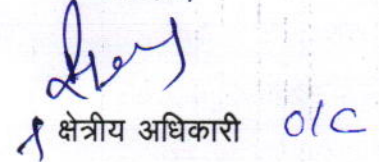 क्षेत्रीय अधिकारी O/C